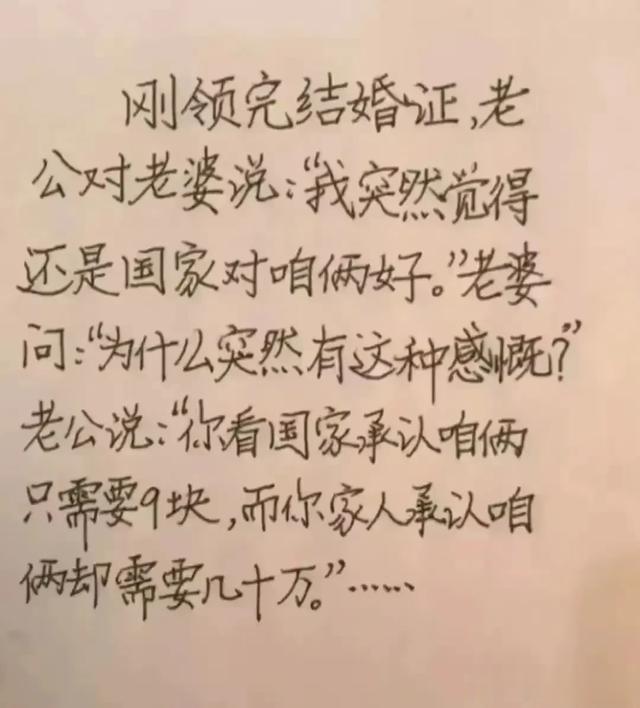 刚领完结婚证,老
公对老婆说:“我突然觉得
还是国家对咱俩好。”老婆
问:“为什么突然有这种感慨?”
老公说:“你看国家承认咱俩
只需要9块,而你家人承认咱
俩却需要几十万。”……